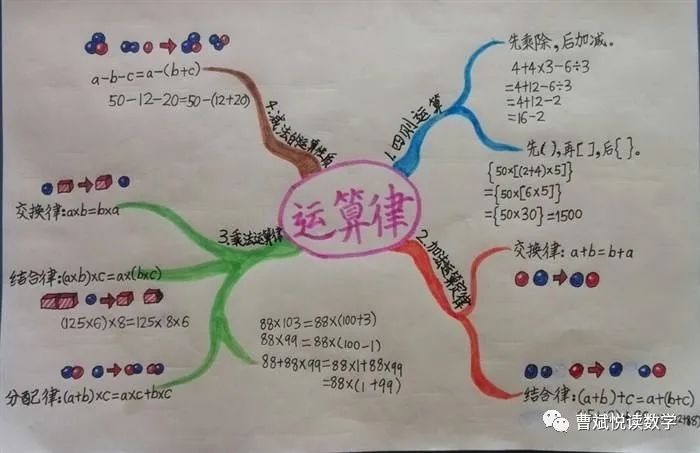 运算律
1.四则运算
先乘除，后加减。
4+4×3-6÷3
=4+12-6÷3
=4+12-2
=16-2
先( ),再[ ],后{ }。
{50×[(2+4)×5]}
={50×[6×5]}
={50×30}=1500
2.加法运算定律
交换律: a+b=b+a
结合律:(a+b)+c=a+(b+c)
3.乘法运算律
交换律:a×b=b×a
结合律:(a×b)×c=a×(b×c)
(125×6)×8=125×8×6
分配律:(a+b)×c=a×c+b×c
88×103=88×(100+3)
88×99=88×(100-1)
88+88×99=88×1+88×99
=88×(1+99)
4.减法的运算性质
a-b-c=a-(b+c)
50-12-20=50-(12+20)
曹斌悦读数学